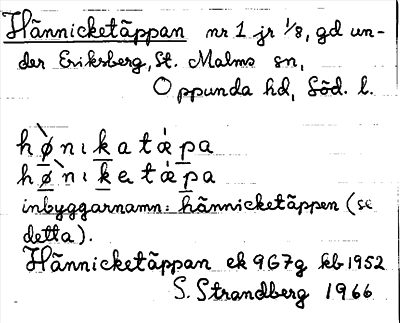 Hännicketäppan nr 1 jr 1/8, gd un-
der Eriksberg, St. Malms sn,
Oppunda hd, Söd. l.
hø̀nıkatǽpa
hø̀nıketǽpa
inbyggarnamn: hännicketäppen (se
detta).
Hännicketäppan ek 9G7g kb 1952
S. Strandberg 1966